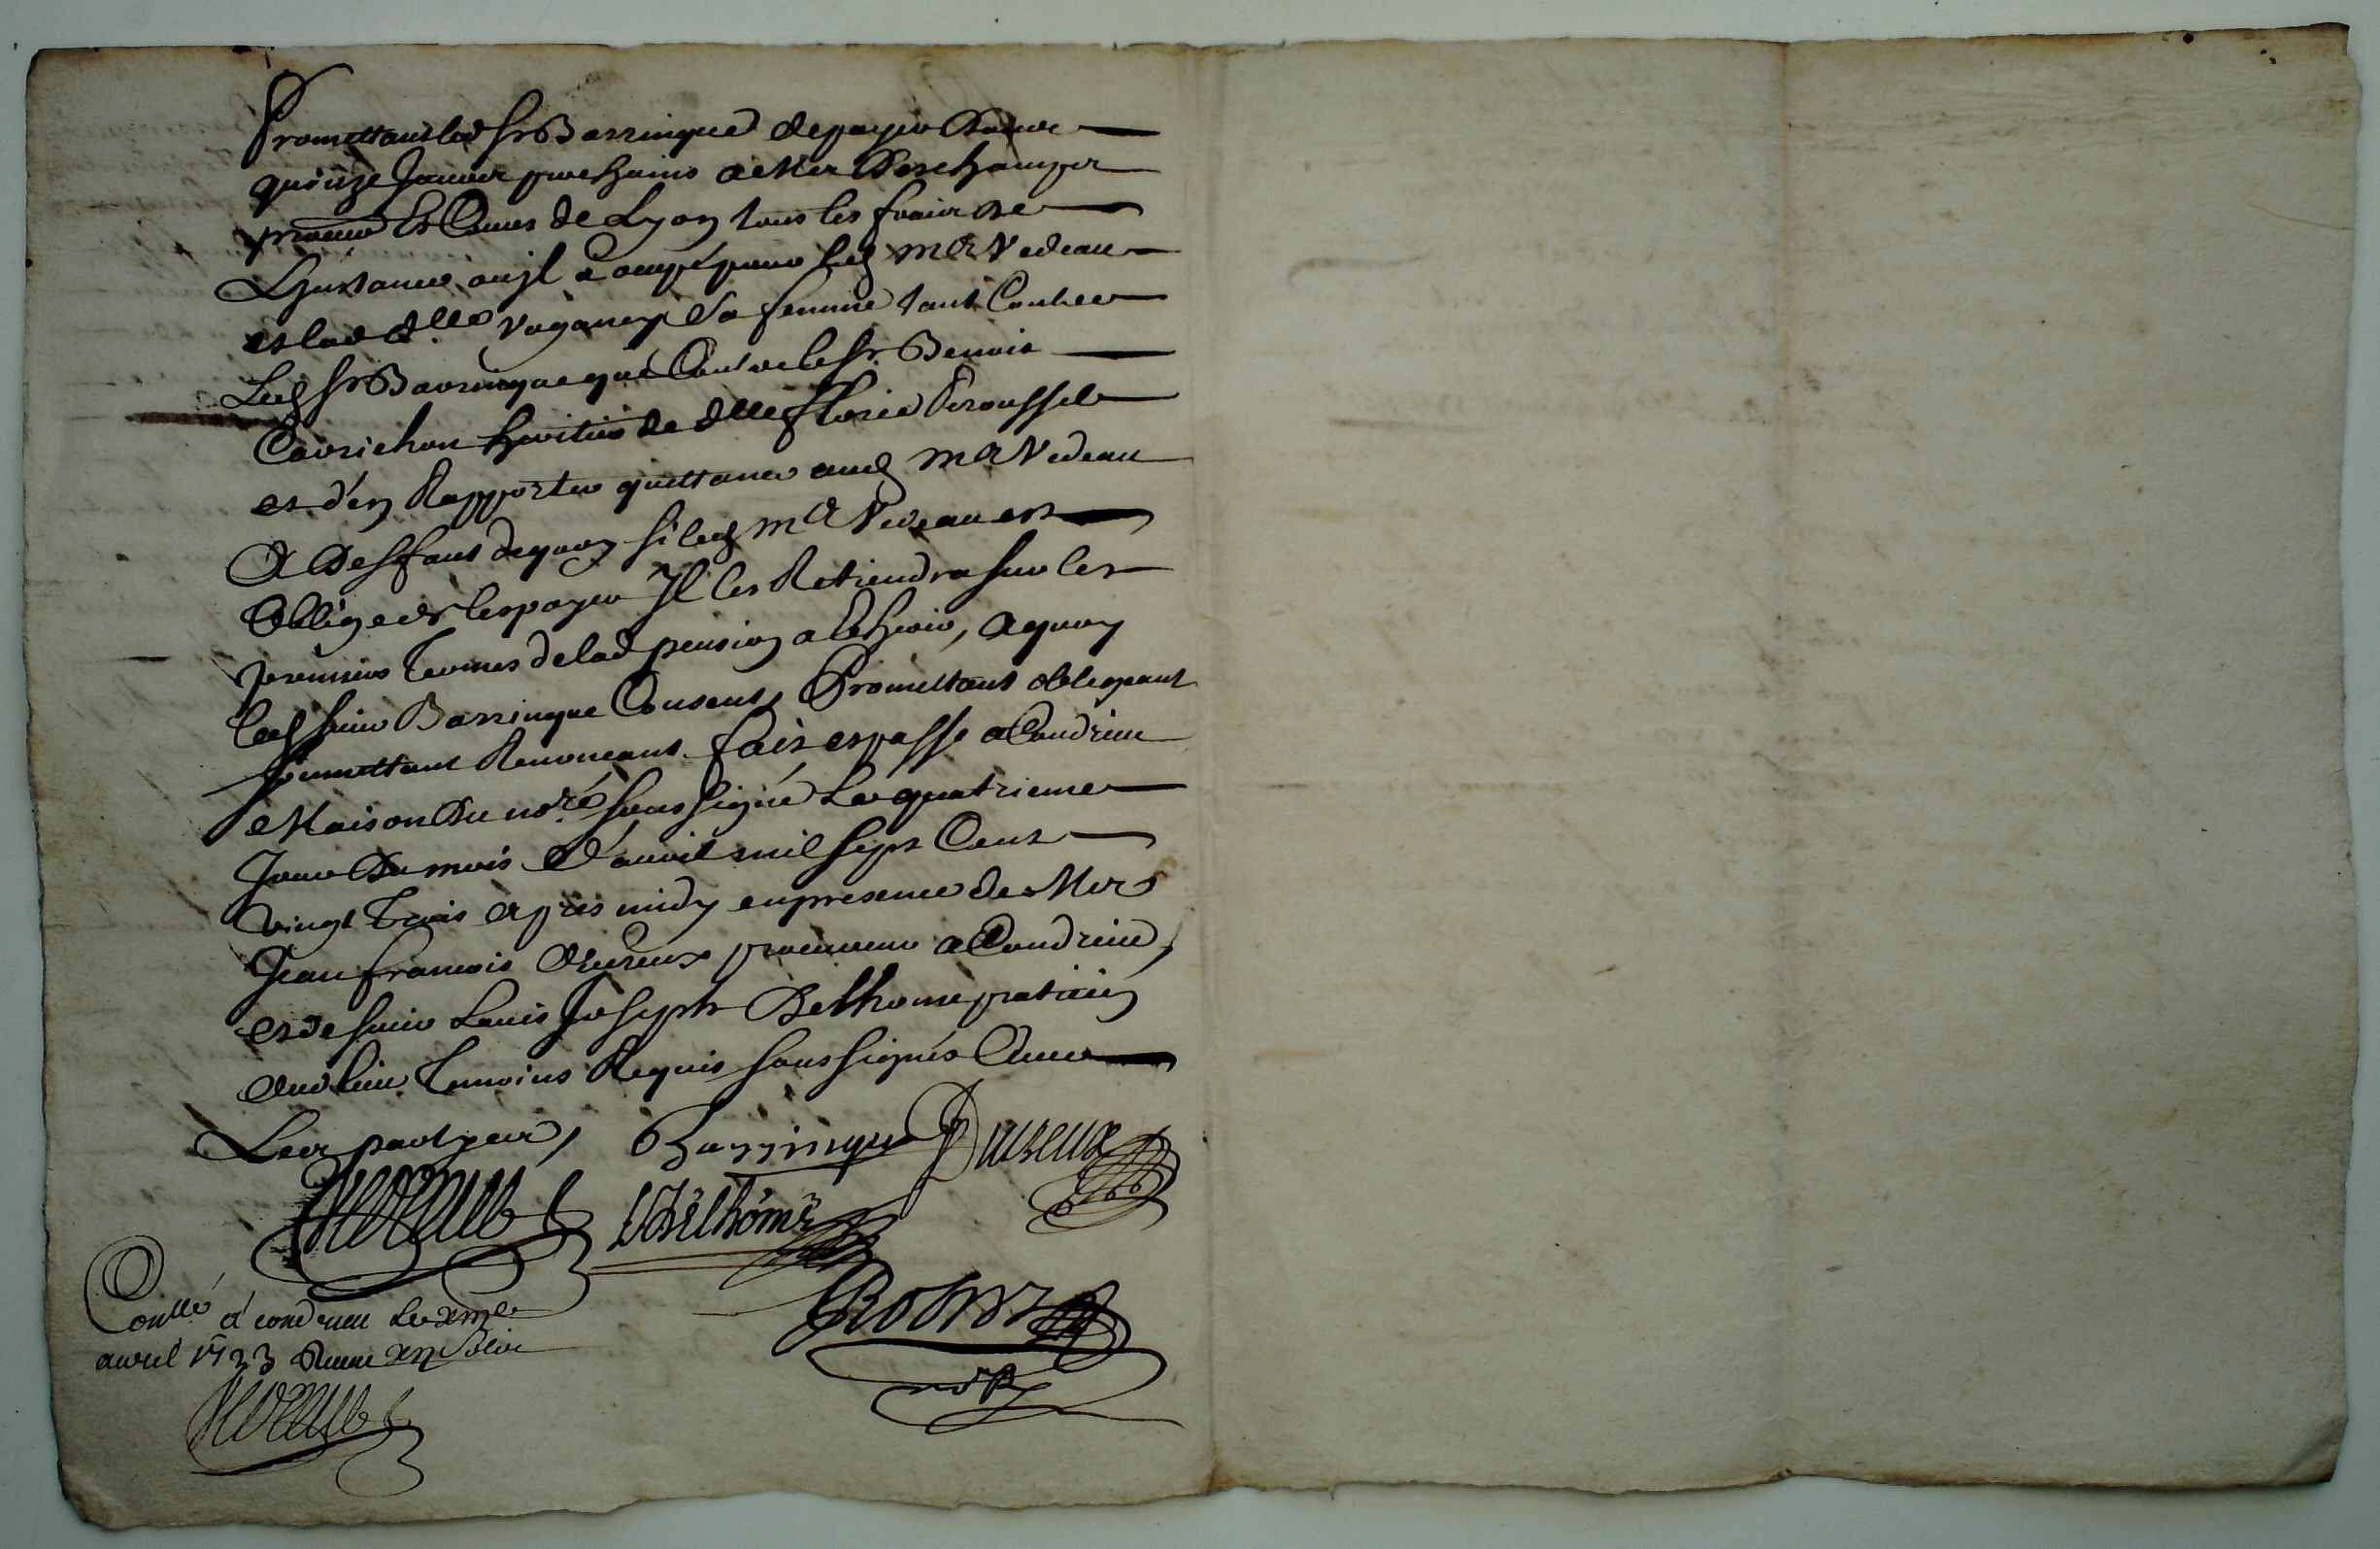 Promettant led Sr Barringue de payer dans
quinze Jours prochains a Me Deschamps
procureur Es Cours de Lyon tous les frais de
L'Instance ou jl a ocupé pour led Me Vedeau
et lad dlle Vaganey Sa femme tant Contre
Led Sr Barringue que Contre le Sr Benoit
Corrichon heritier de dlle florie Peroussel
et d'en Rapporter quittance aud Me Vedeau
A Deffaut dequoy si led Me Vedeau est
Obligé de les payer Jl les Retiendra sur les
premiers Termes de lad pension a Echeoir, a quoy
led sieur Barringue Consent, Promettant obligeant
soumettant Renonceant fait et passé a Condrieu
Maison du nore soussigné Le quatrieme
Jour du mois d'avril mil sept Cent
vingt Trois apres midy en presence de Me
Jean francois Dureux procureur a Condrieu,
et de sieur Louis Joseph Delhome praticien
dud lieu Temoins Requis soussignés Avec
Les parties,
Barringue Dureux
Vedeau LJDelhome
Conllé a condrieu le
avril 1723 Receu sols
Vedeau